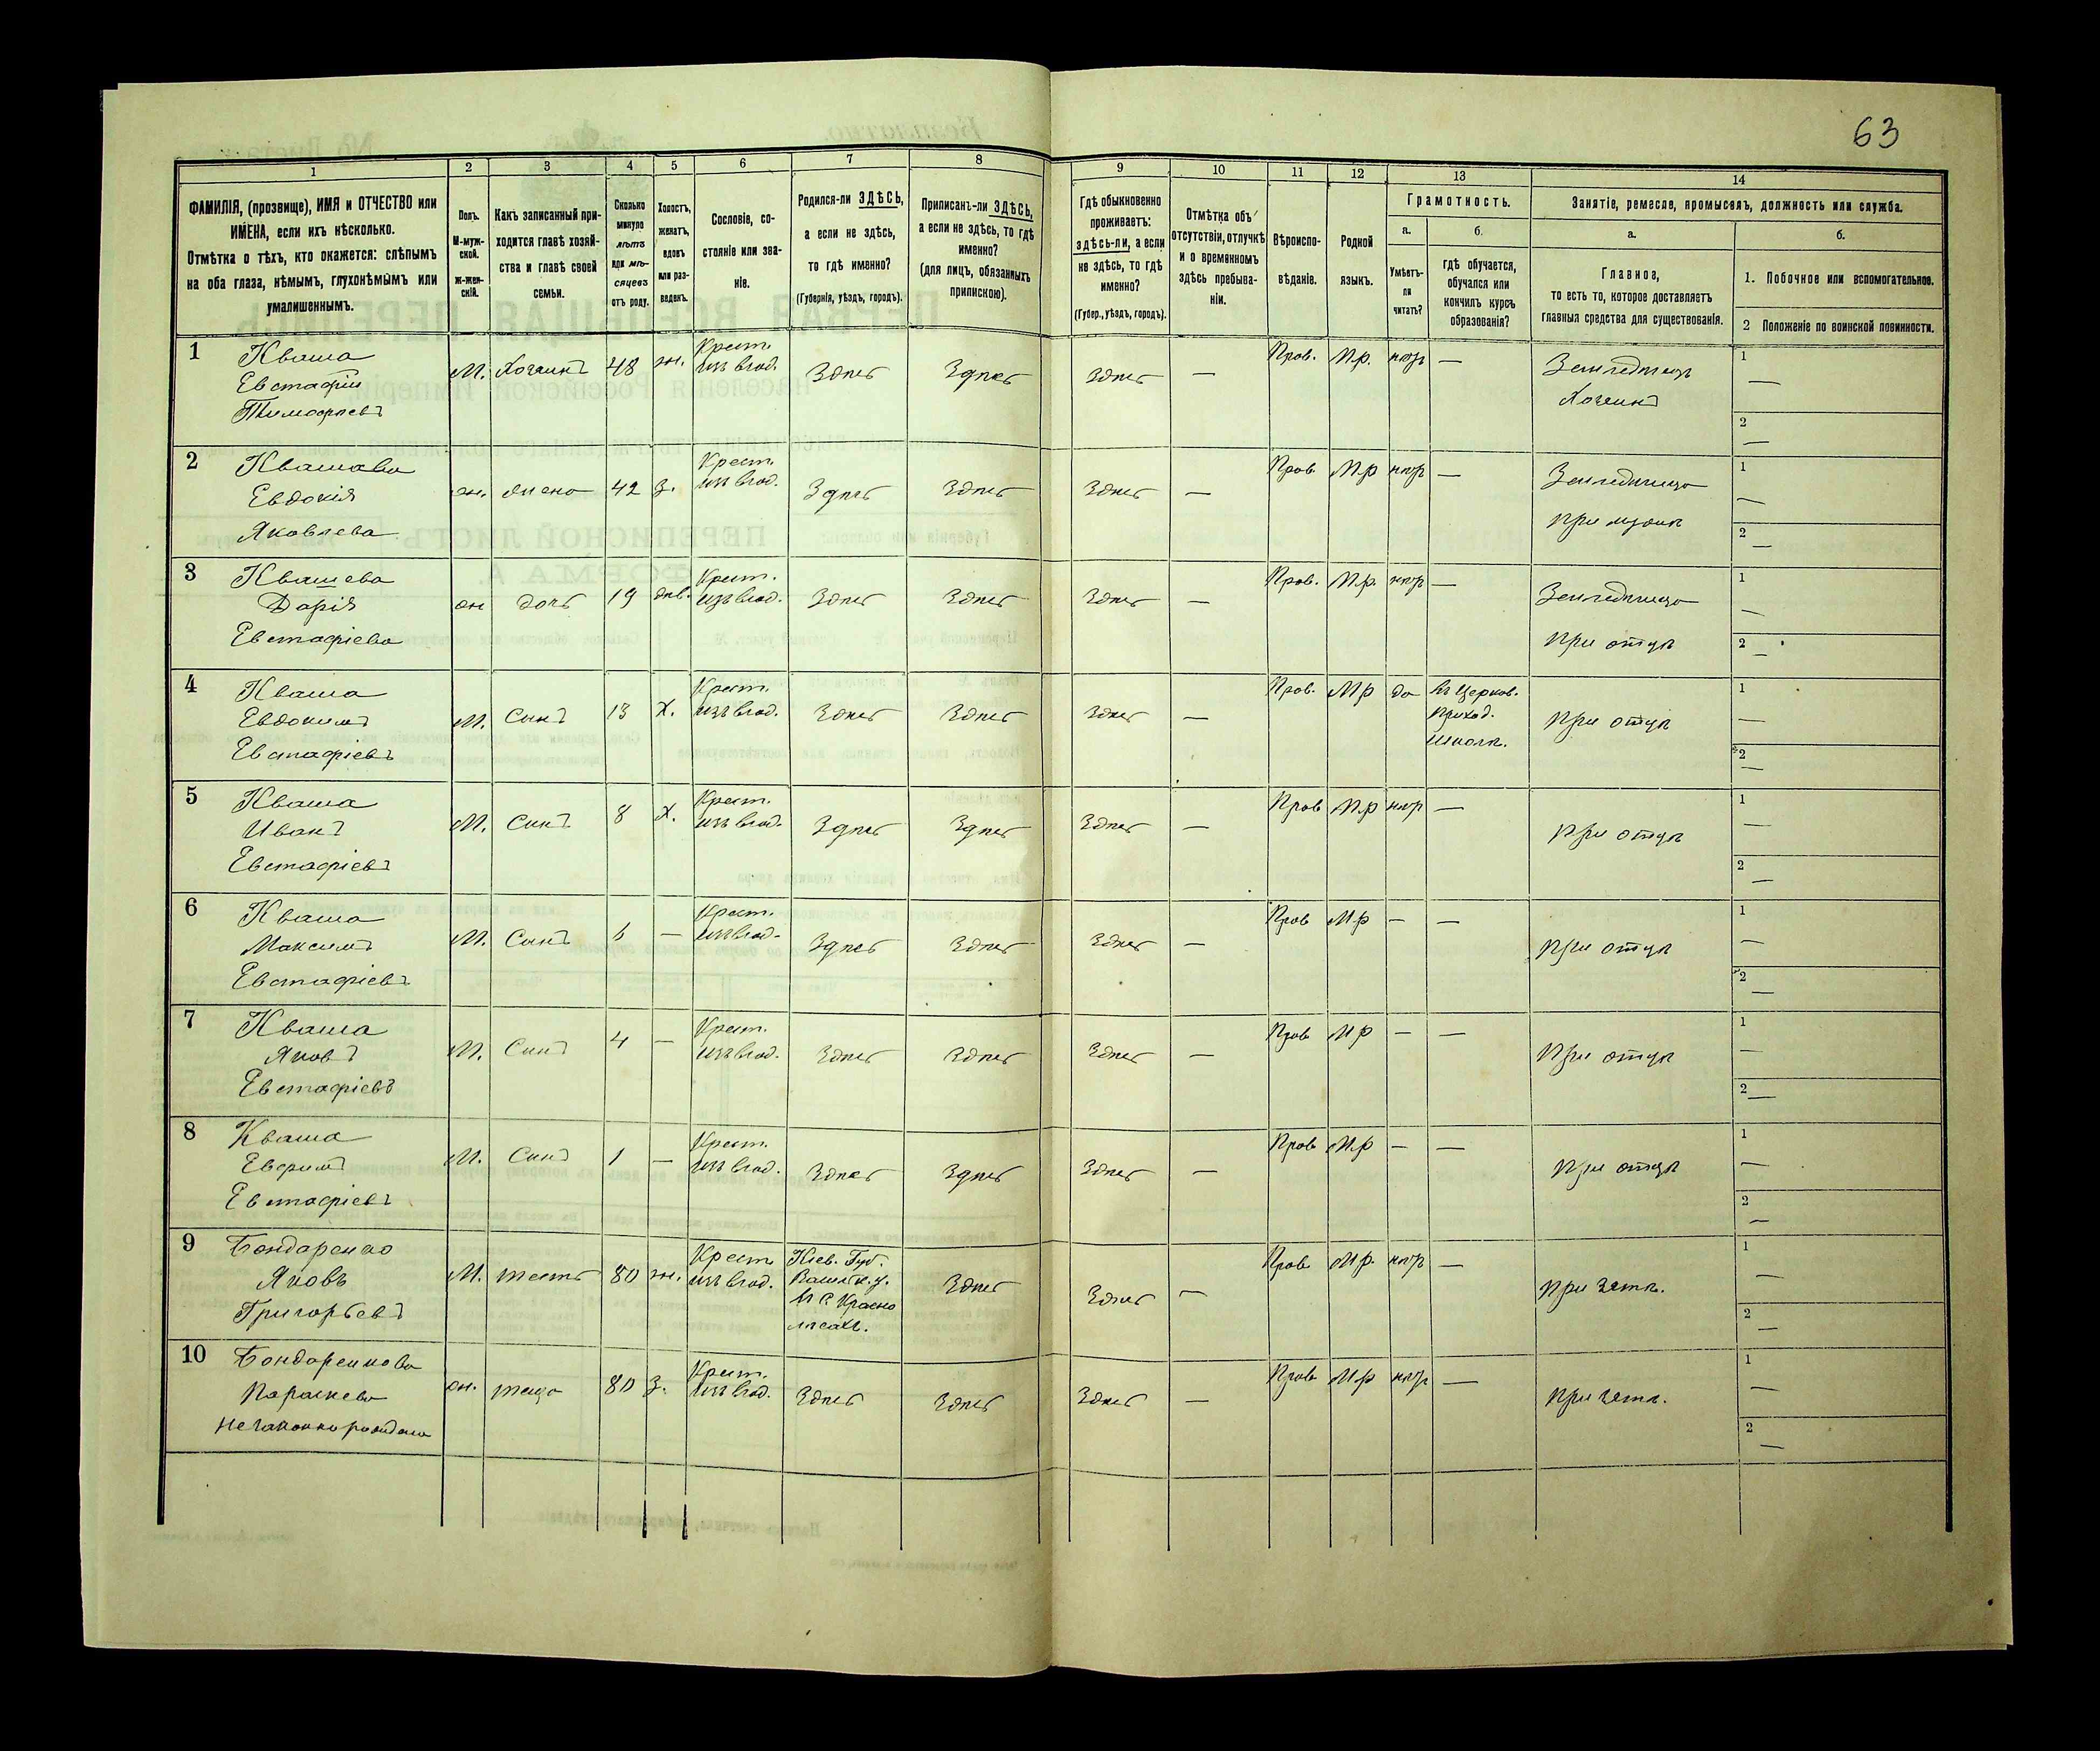 63
1 2 3 4 5 6 7 8 9 10 11 12 13 14
ФАМИЛІЯ, (прозвище), ИМЯ и ОТЧЕСТВО или
ИМЕНА, если ихъ нѣсколько.
Отмѣтка о тѣхъ, кто окажется: слѣпымъ
на оба глаза, нѣмымъ, глухонѣмымъ или
умалишеннымъ.
Полъ.
М-муж-
ской.
ж-жен-
скій.
Какъ записанный при-
ходится главѣ хозяй-
ства и главѣ своей
семьи.
Сколько
минуло
лѣтъ
или мѣ-
сяцевъ
отъ роду.
Холостъ,
женатъ,
вдовъ
или раз-
веденъ.
Сословіе, со-
стояніе или зва-
ніе.
Родился-ли ЗДѢСЬ,
а если не здѣсь,
то гдѣ именно?
(Губернія, уѣздъ, городъ).
Приписанъ-ли ЗДѢСЬ,
а если не здѣсь, то гдѣ
именно?
(для лицъ, обязанныхъ
припискою).
Гдѣ обыкновенно
проживаетъ:
здѣсь-ли, а если
не здѣсь, то гдѣ
именно?
(Губер., уѣздъ, городъ).
Отмѣтка объ
отсутствіи, отлучкѣ
и о временномъ
здѣсь пребыва-
ніи.
Вѣроиспо-
вѣданіе.
Родной
языкъ.
Грамотность.
а.
Умѣетъ-
ли
читать?
б.
гдѣ обучается,
обучался или
кончилъ курсъ
образованія?
Занятіе, ремесло, промыселъ, должность или служба.
а.
Главное,
то есть то, которое доставляетъ
главныя средства для существованія.
б.
1. Побочное или вспомогательное.
2 Положеніе по воинской повинности.
1 Кваша
Евстафій
Тимофѣевъ
М. Хозяинъ 48 ж. Крест.
изъ влад.
Здѣсь Здѣсь Здѣсь — Прав. М.р. нѣтъ — Земледѣлецъ
Хозяинъ
1 —
2 —
2 Квашева
Евдокія
Яковлева
ж. жена 42 з. Крест.
изъ влад.
Здѣсь Здѣсь Здѣсь — Прав М.р нѣтъ — Земледѣлица
при мужѣ
1 —
2 —
3 Квашева
Дарія
Евстафіева
ж дочь 19 дѣв. Крест.
изъ влад.
Здѣсь Здѣсь Здѣсь — Прав. М.р. нѣтъ — Земледѣлица
при отцѣ
1 —
2 —
4 Кваша
Евдокимъ
Евстафіевъ
М. Сынъ 13 Х. Крест.
изъ влад.
Здѣсь Здѣсь Здѣсь — Прав. М р да Въ Церков.
приход.
школѣ.
при отцѣ
1 —
2 —
5 Кваша
Иванъ
Евстафіевъ
М. Сынъ 8 х. Крест.
изъ влад.
Здѣсь Здѣсь Здѣсь — Прав М.р нѣтъ — при отцѣ
1 —
2 —
6 Кваша
Максимъ
Евстафіевъ
М. Сынъ — Крест.
изъ влад.
Здѣсь Здѣсь Здѣсь — Прав М р — — при отцѣ
1 —
2 —
7 Кваша
Яковъ
Евстафіевъ
М. Сынъ 4 — Крест.
изъ влад.
Здѣсь Здѣсь Здѣсь — Прав М р — — При отцѣ
1 —
2 —
8 Кваша
Ефримъ
Евстафіевъ
М. Сынъ 1 — Крест.
изъ влад.
Здѣсь Здѣсь Здѣсь — Прав М.р — — при отцѣ
1 —
2 —
9 Бондаренко
Яковъ
Григорьевъ
М. тесть 80 ж. Крест
изъ влад.
Кіев. Губ.
Васильк. у.
въ с. Красно
лѣсахъ.
Здѣсь Здѣсь — Прав М.р. нѣтъ — при зятѣ.
1 —
2 —
10 Бондаренкова
Параскева
незаконнорождена
ж. теща 80 з. Крест.
изъ влад.
Здѣсь Здѣсь Здѣсь — Прав М р нѣтъ — при зятѣ.
1 —
2 —